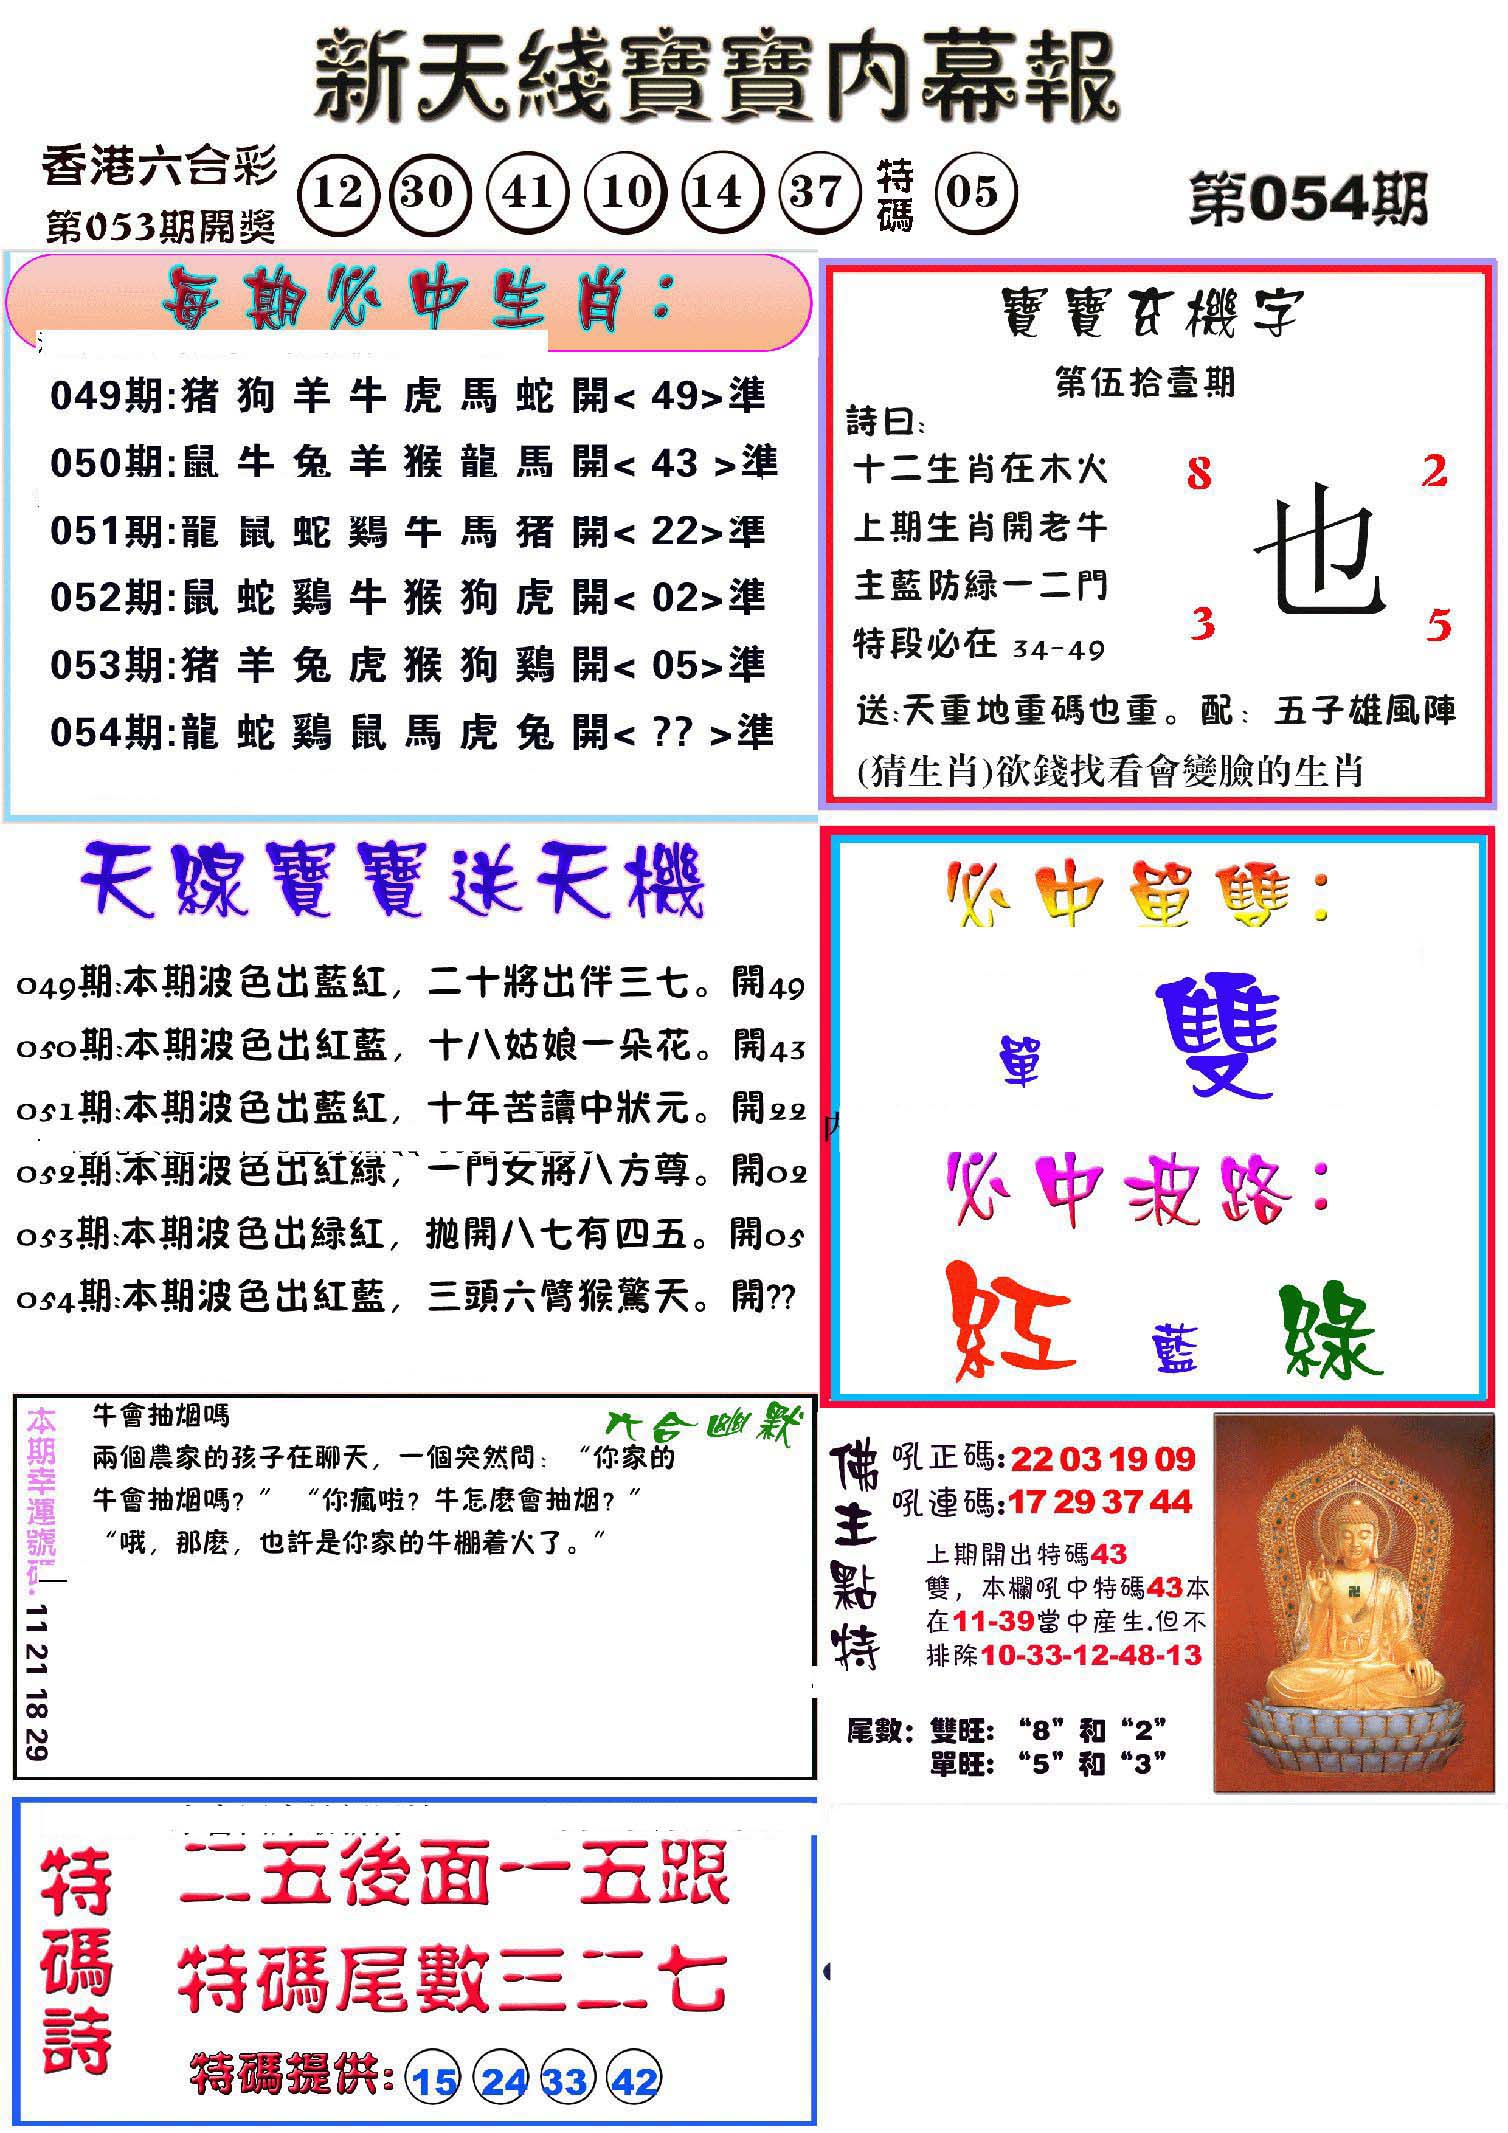 新天綫寶寶内幕報
香港六合彩
第053期開獎
12 30 41 10 14 37 特碼 05
第054期
每期必中生肖：
049期:猪 狗 羊 牛 虎 馬 蛇 開< 49>準
050期:鼠 牛 兔 羊 猴 龍 馬 開< 43 >準
051期:龍 鼠 蛇 鷄 牛 馬 猪 開< 22>準
052期:鼠 蛇 鷄 牛 猴 狗 虎 開< 02>準
053期:猪 羊 兔 虎 猴 狗 鷄 開< 05>準
054期:龍 蛇 鷄 鼠 馬 虎 兔 開< ?? >準
寶寶玄機字
第伍拾壹期
詩曰:
十二生肖在木火
上期生肖開老牛
主藍防緑一二門
特段必在 34-49
8 2
也
3 5
送:天重地重碼也重。配：五子雄風陣
(猜生肖)欲錢找看會變臉的生肖
天線寶寶送天機
049期:本期波色出藍紅，二十將出伴三七。開49
050期:本期波色出紅藍，十八姑娘一朵花。開43
051期:本期波色出藍紅，十年苦讀中狀元。開22
052期:本期波色出紅緑，一門女將八方尊。開02
053期:本期波色出緑紅，抛開八七有四五。開05
054期:本期波色出紅藍，三頭六臂猴驚天。開??
必中單雙：
單 雙
必中波路：
紅 藍 綠
本期幸運號碼: 11 21 18 29
六合幽默
牛會抽烟嗎
兩個農家的孩子在聊天，一個突然問：“你家的
牛會抽烟嗎？”“你瘋啦？牛怎麽會抽烟？”
“哦，那麽，也許是你家的牛棚着火了。”
佛主點特
吼正碼:22 03 19 09
吼連碼:17 29 37 44
上期開出特碼43
雙，本欄吼中特碼43本
在11-39當中産生.但不
排除10-33-12-48-13
尾數：雙旺：“8”和“2”
單旺：“5”和“3”
特碼詩
二五後面一五跟
特碼尾數三二七
特碼提供: 15 24 33 42